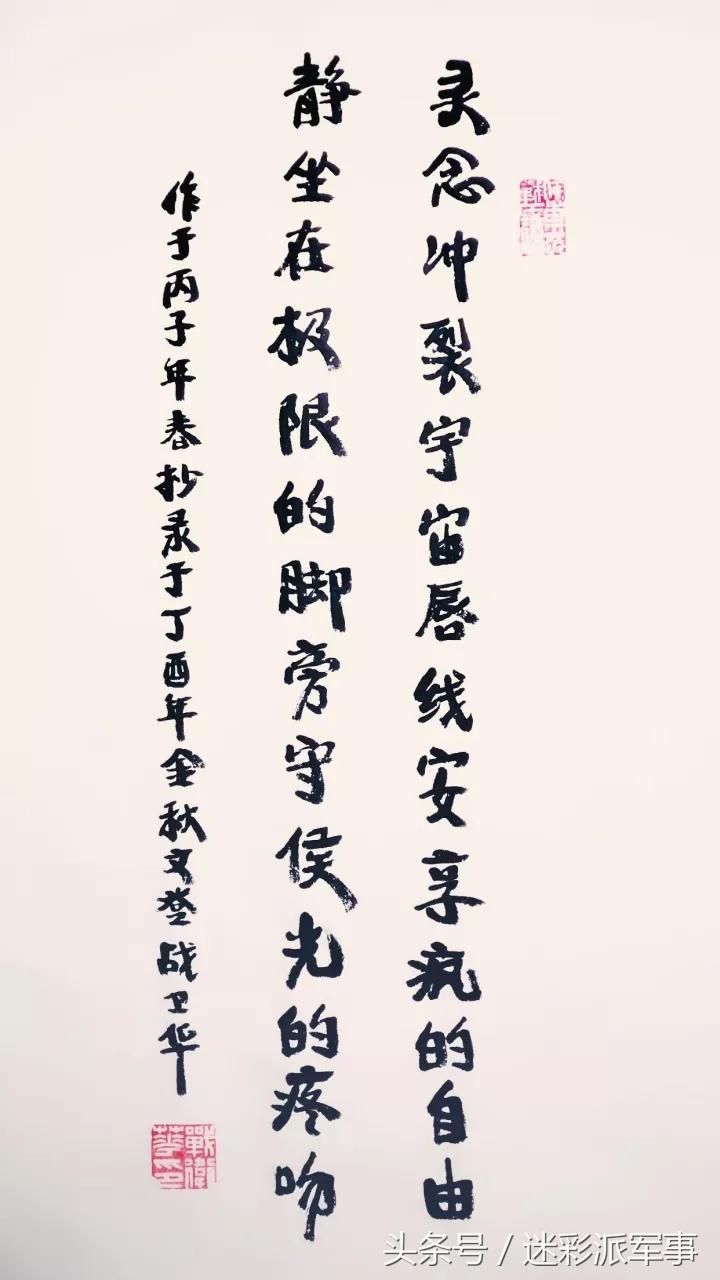 灵念冲裂宇宙唇线安享疯的自由
静坐在极限的脚旁守侯光的疼吻
作于丙子年春抄录于丁酉年金秋文登战卫华
戰衛華印
头条号 / 迷彩派军事